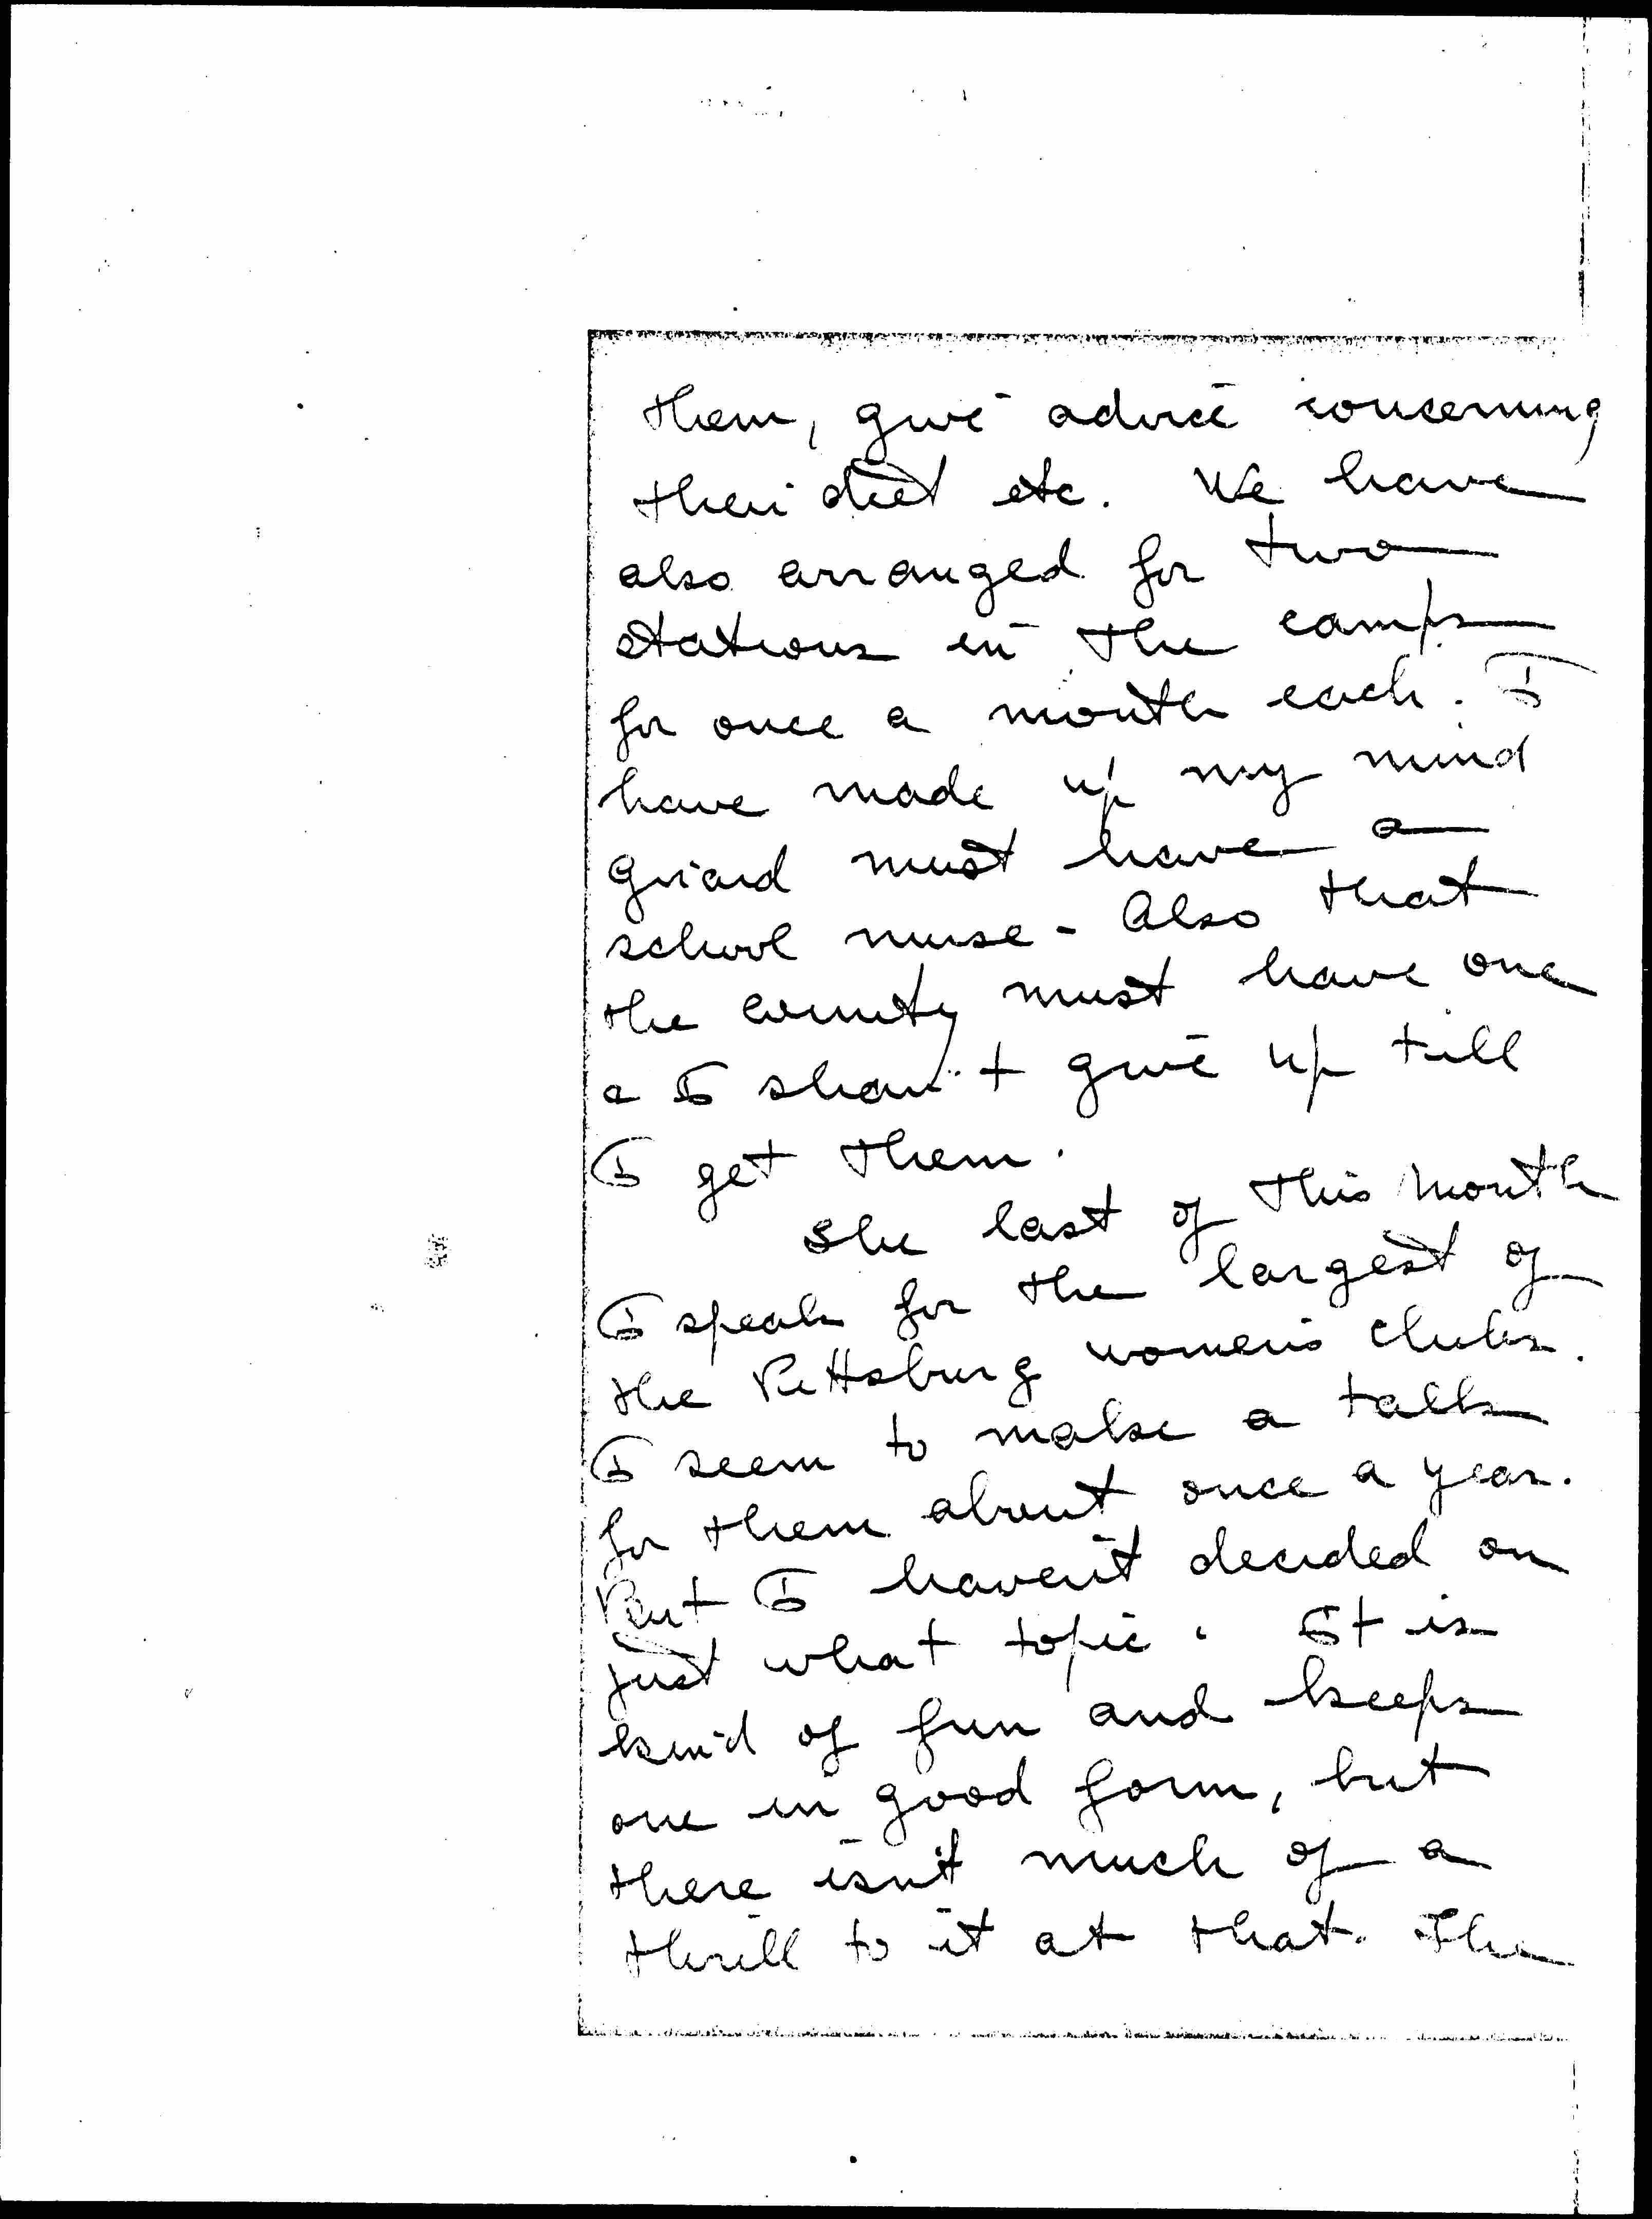 them, give advice concerning
their diet etc. We have
also arranged for two
stations in the camps
for once a month each. I
have made up my mind
Girard must have a
school nurse - Also that
the county must have one
& I shan't give up till
I get them.
The last of this month
I speak for the largest of
the Pittsburg women's clubs.
I seem to make a talk
for them about once a year.
But I haven't decided on
just what topic. It is
kind of fun and keeps
one in good form, but
there isn't much of a
thrill to it at that. The